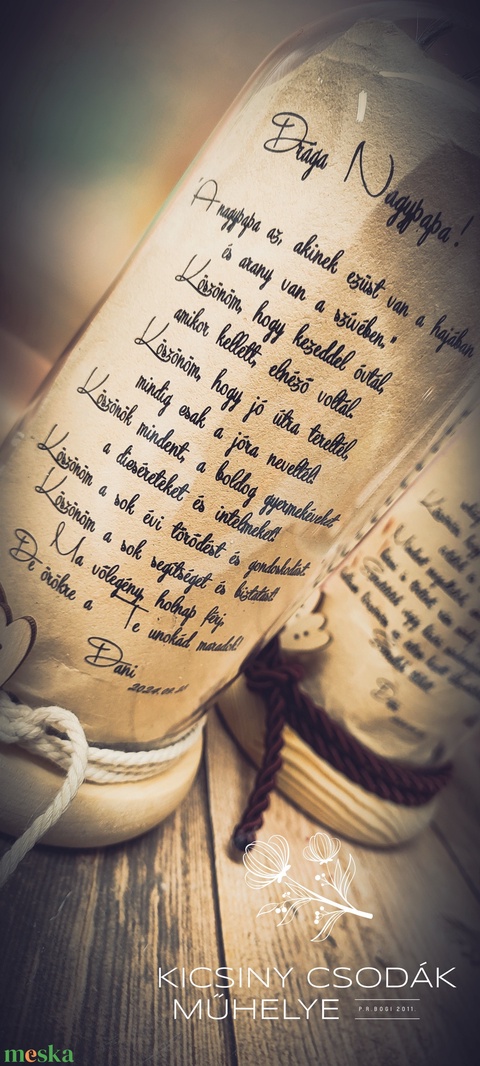 Drága Nagypapa!
"A nagypapa az, akinek ezüst van a hajában
és arany van a szívében."
Köszönöm, hogy kezeddel óvtál,
amikor kellett, elnéző voltál.
Köszönöm, hogy jó útra tereltél,
mindig csak a jóra neveltél!
Köszönök mindent, a boldog gyermekéveket
a dicséreteket és intelmeket!
Köszönöm a sok évi törődést és gondoskodást
Köszönöm a sok segítséget és biztatást!
Ma vőlegény, holnap férj,
De örökre a Te unokád maradok!
Dani
KICSINY CSODÁK
MŰHELYE
P.R.BOGI 2011.
meska